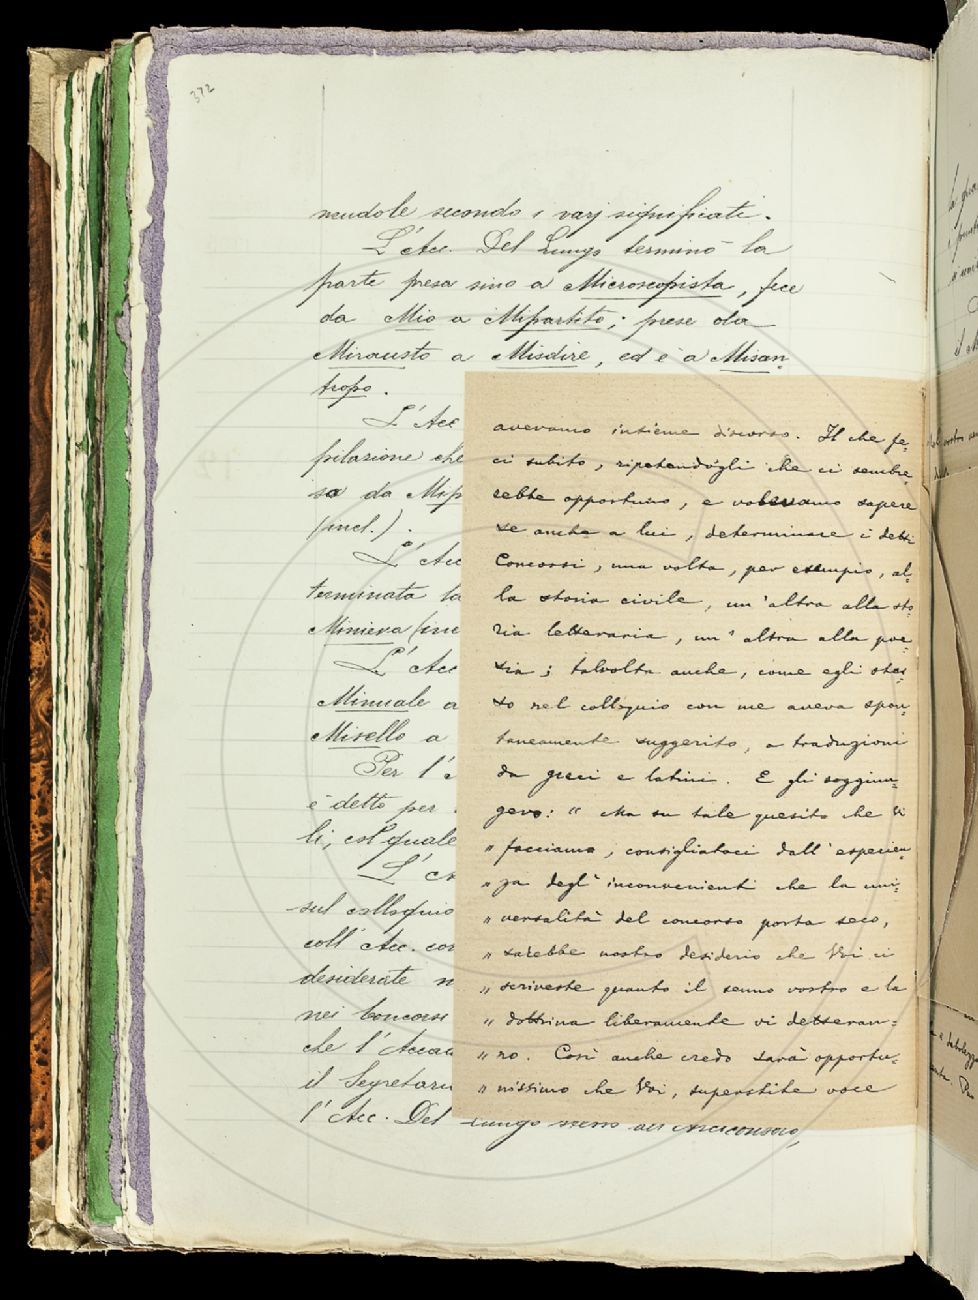 372
nendole secondo i varj significati.
L'Acc. Del Lungo terminò la
parte presa sino a Microscopista, fece
da Mio a Mipartito; prese da
Mirausto a Misdire, ed è a Misan-
tropo.
L'Acc
pilazione che
sa da Mip
(incl.).
L'Acc
terminata la
Miniera (inc
L'Acc
Minuale a
Misello a
Per l'
è detto per
li, col quale
L'
sul colloquio
coll'Acc. con
desiderate
nei Concorsi
che l'Accad
il Segretario
l'Acc. Del Lungo
avevamo insieme discorso. Il che fe-
ci subito, ripetendogli che ci sembre-
rebbe opportuno, e volevamo sapere
se anche a lui, determinare i detti
Concorsi, una volta, per esempio, al-
la storia civile, un'altra alla sto-
ria letteraria, un'altra alla poe-
sia; talvolta anche, come egli stes-
so nel colloquio con me aveva spon-
taneamente suggerito, a traduzioni
da greci e latini. E gli soggiun-
gevo: "Ma su tale quesito che Vi
" facciamo, consigliatoci dall'esperien-
" za degl'inconvenienti che la uni-
" versalità del concorso porta seco,
" sarebbe nostro desiderio che Voi ci
" scriveste quanto il senno vostro e la
" dottrina liberamente vi detteran-
" no. Così anche credo sarà opportu-
" nissimo che Voi, superstite voce